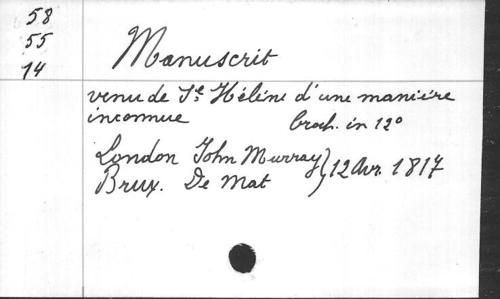 58
55
14
Manuscrit
venu de Ste Hélène d'une manière
inconnue
broch. in 12°
London John Murray } 12 Avr. 1817
Brux. De Mat